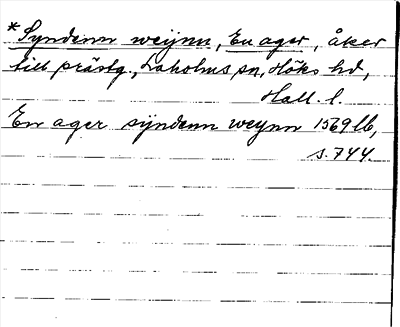 *Syndenn weijnn, En ager, åker
till prästg., Laholms sn, Höks hd,
Hall. l.
En ager sÿndenn weynn 1569 lb,
s. 744.